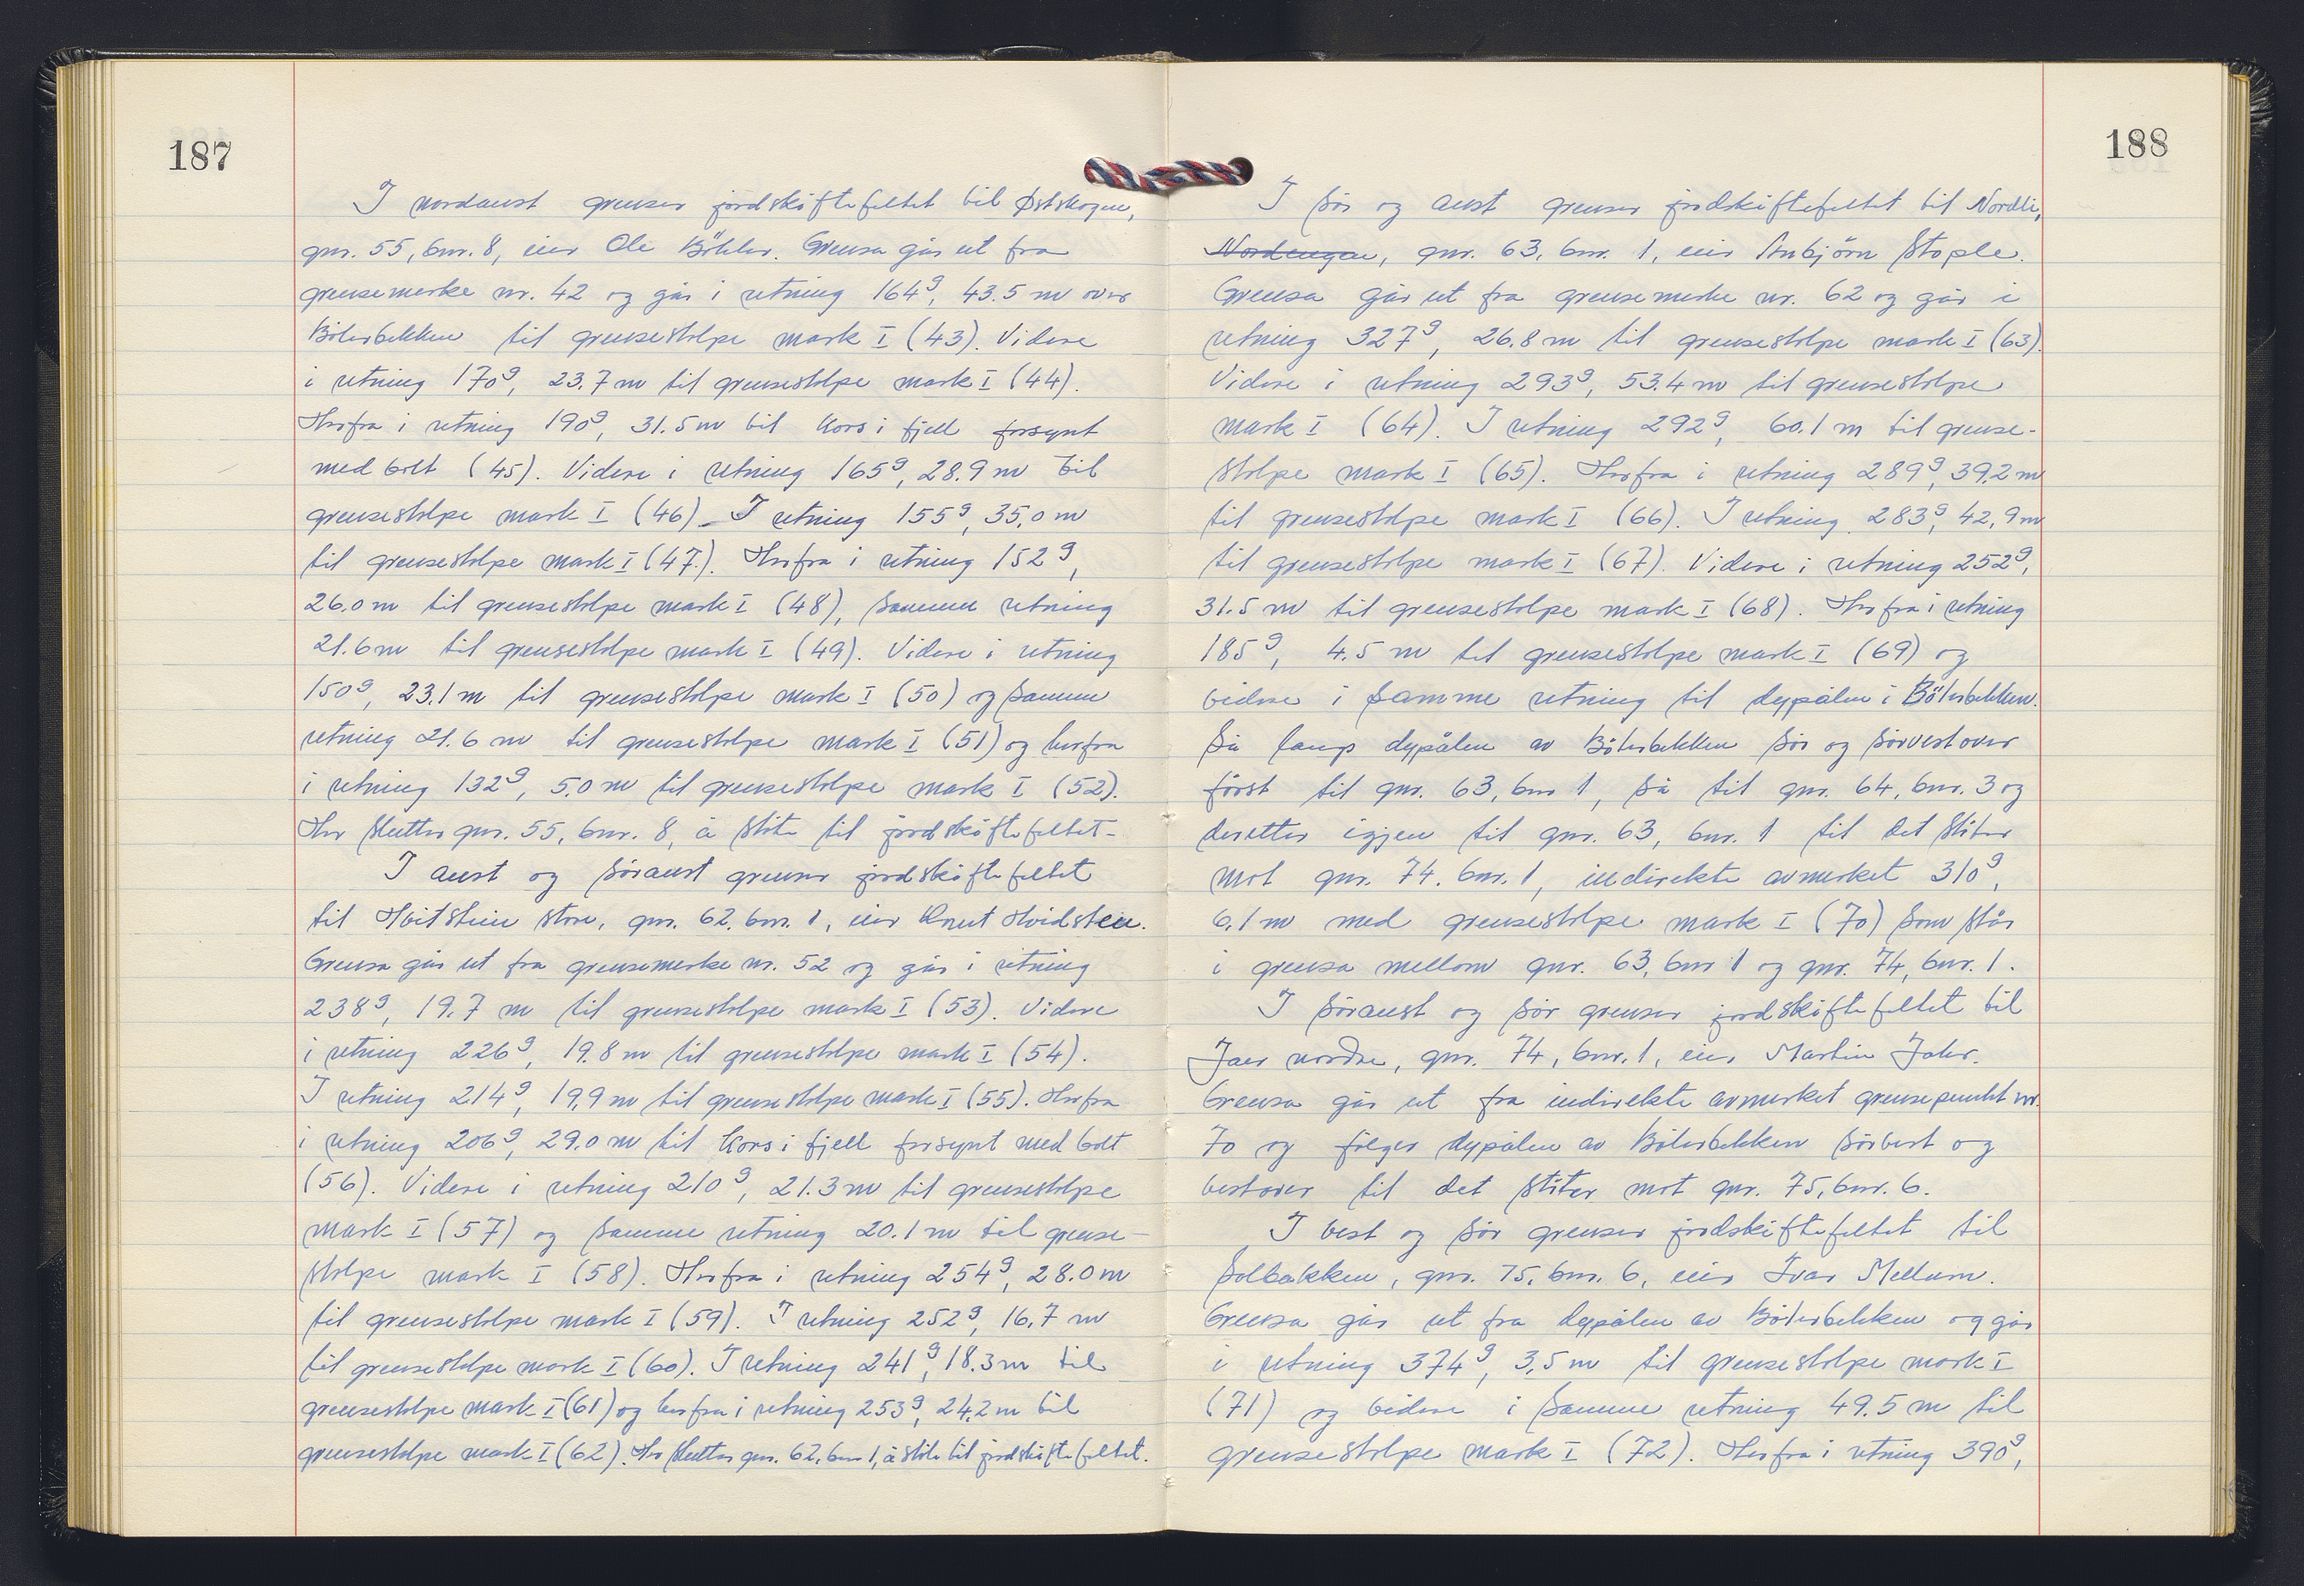 187
I nordaust grenser jordskiftefeltet til Østskogen,
gnr. 55, bnr. 8, eier Ole Böhler. Grensa går ut fra
grensemerke nr. 42 og går i retning 164g, 43.5 m over
Bölerbekken til grensestolpe mark I (43). Videre
i retning 170g, 23.7 m til grensestolpe mark I (44).
Herfra i retning 190g, 31.5 m til kors i fjell forsynt
med bolt (45). Videre i retning 165g, 28.9 m til
grensestolpe mark I (46). I retning 155g, 35,0 m
til grensestolpe mark I (47.). Herfra i retning 152g,
26.0 m til grensestolpe mark I (48), samme retning
21.6 m til grensestolpe mark I (49). Videre i retning
150g, 23,1 m til grensestolpe mark I (50) og samme
retning 21.6 m til grensestolpe mark I (51) og herfra
i retning 132g, 5.0 m til grensestolpe mark I (52).
Her slutter gnr. 55, bnr. 8, å støte til jordskiftefeltet.
I aust og søraust grenser jordskiftefeltet
til Hvitstein store, gnr. 62, bnr. 1, eier Knut Hvidsten.
Grensa går ut fra grensemerke nr. 52 og går i retning
238g, 19.7 m til grensestolpe mark I (53). Videre
i retning 226g, 19.8 m til grensestolpe mark I (54).
I retning 214g, 19,9 m til grensestolpe mark I (55). Herfra
i retning 206g, 29.0 m til kors i fjell forsynt med bolt
(56). Videre i retning 210g, 21.3 m til grensestolpe
mark I (57) og samme retning 20.1 m til grense-
stolpe mark I (58). Herfra i retning 254g, 28.0 m
til grensestolpe mark I (59). I retning 252g, 16,7 m
til grensestolpe mark I (60). I retning 241g, 18.3 m til
grensestolpe mark I (61) og herfra i retning 253g, 24,2 m til
grensestolpe mark I (62). Her slutter gnr. 62, bnr 1, å støte til jordskiftefeltet.
188
I sør og aust grenser jordskiftefeltet til Nordli,
Nordengen, gnr. 63, bnr. 1, eier Anbjörn Stople.
Grensa går ut fra grensemerke nr. 62 og går i
retning 327g, 26.8 m til grensestolpe mark I (63).
Videre i retning 293g, 53.4 m til grensestolpe
mark I (64). I retning 292g, 60.1 m til grense-
stolpe mark I (65). Herfra i retning 289g, 39,2 m
til grensestolpe mark I (66). I retning 283g, 42,9 m
til grensestolpe mark I (67). Videre i retning 252g,
31.5 m til grensestolpe mark I (68). Herfra i retning
185g, 4.5 m til grensestolpe mark I (69) og
videre i samme retning til dypålen i Bölerbekken.
Så langs dypålen av Bölerbekken sør og sørvestover
først til gnr. 63, bnr 1, så til gnr. 64, bnr. 3 og
deretter igjen til gnr. 63, bnr. 1 til det støter
mot gnr. 74. bnr. 1, indirekte avmerket 310g,
6,1 m med grensestolpe mark I (70) som står
i grensa mellom gnr. 63, bnr 1 og gnr. 74, bnr. 1.
I søraust og sør grenser jordskiftefeltet til
Jaer nordre, gnr. 74, bnr. 1, eier Martin Jahr.
Grensa går ut fra indirekte avmerket grensepunkt nr.
70 og følger dypålen av Bölerbekken sørvest og
vestover til det støter mot gnr. 75, bnr. 6.
I vest og sør grenser jordskiftefeltet til
Solbakken, gnr. 75, bnr. 6, eier Ivar Mellum.
Grensa går ut fra dypålen av Bölerbekken og går
i retning 374g, 3,5 m til grensestolpe mark I
(71) og videre i samme retning 49.5 m til
grensestolpe mark I (72). Herfra i retning 390g,